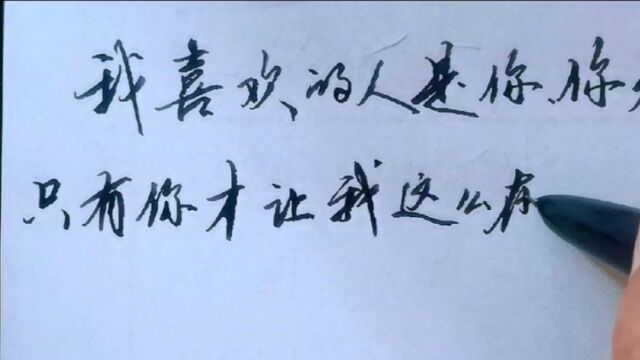 我喜欢的人是你、你
只有你才让我这么